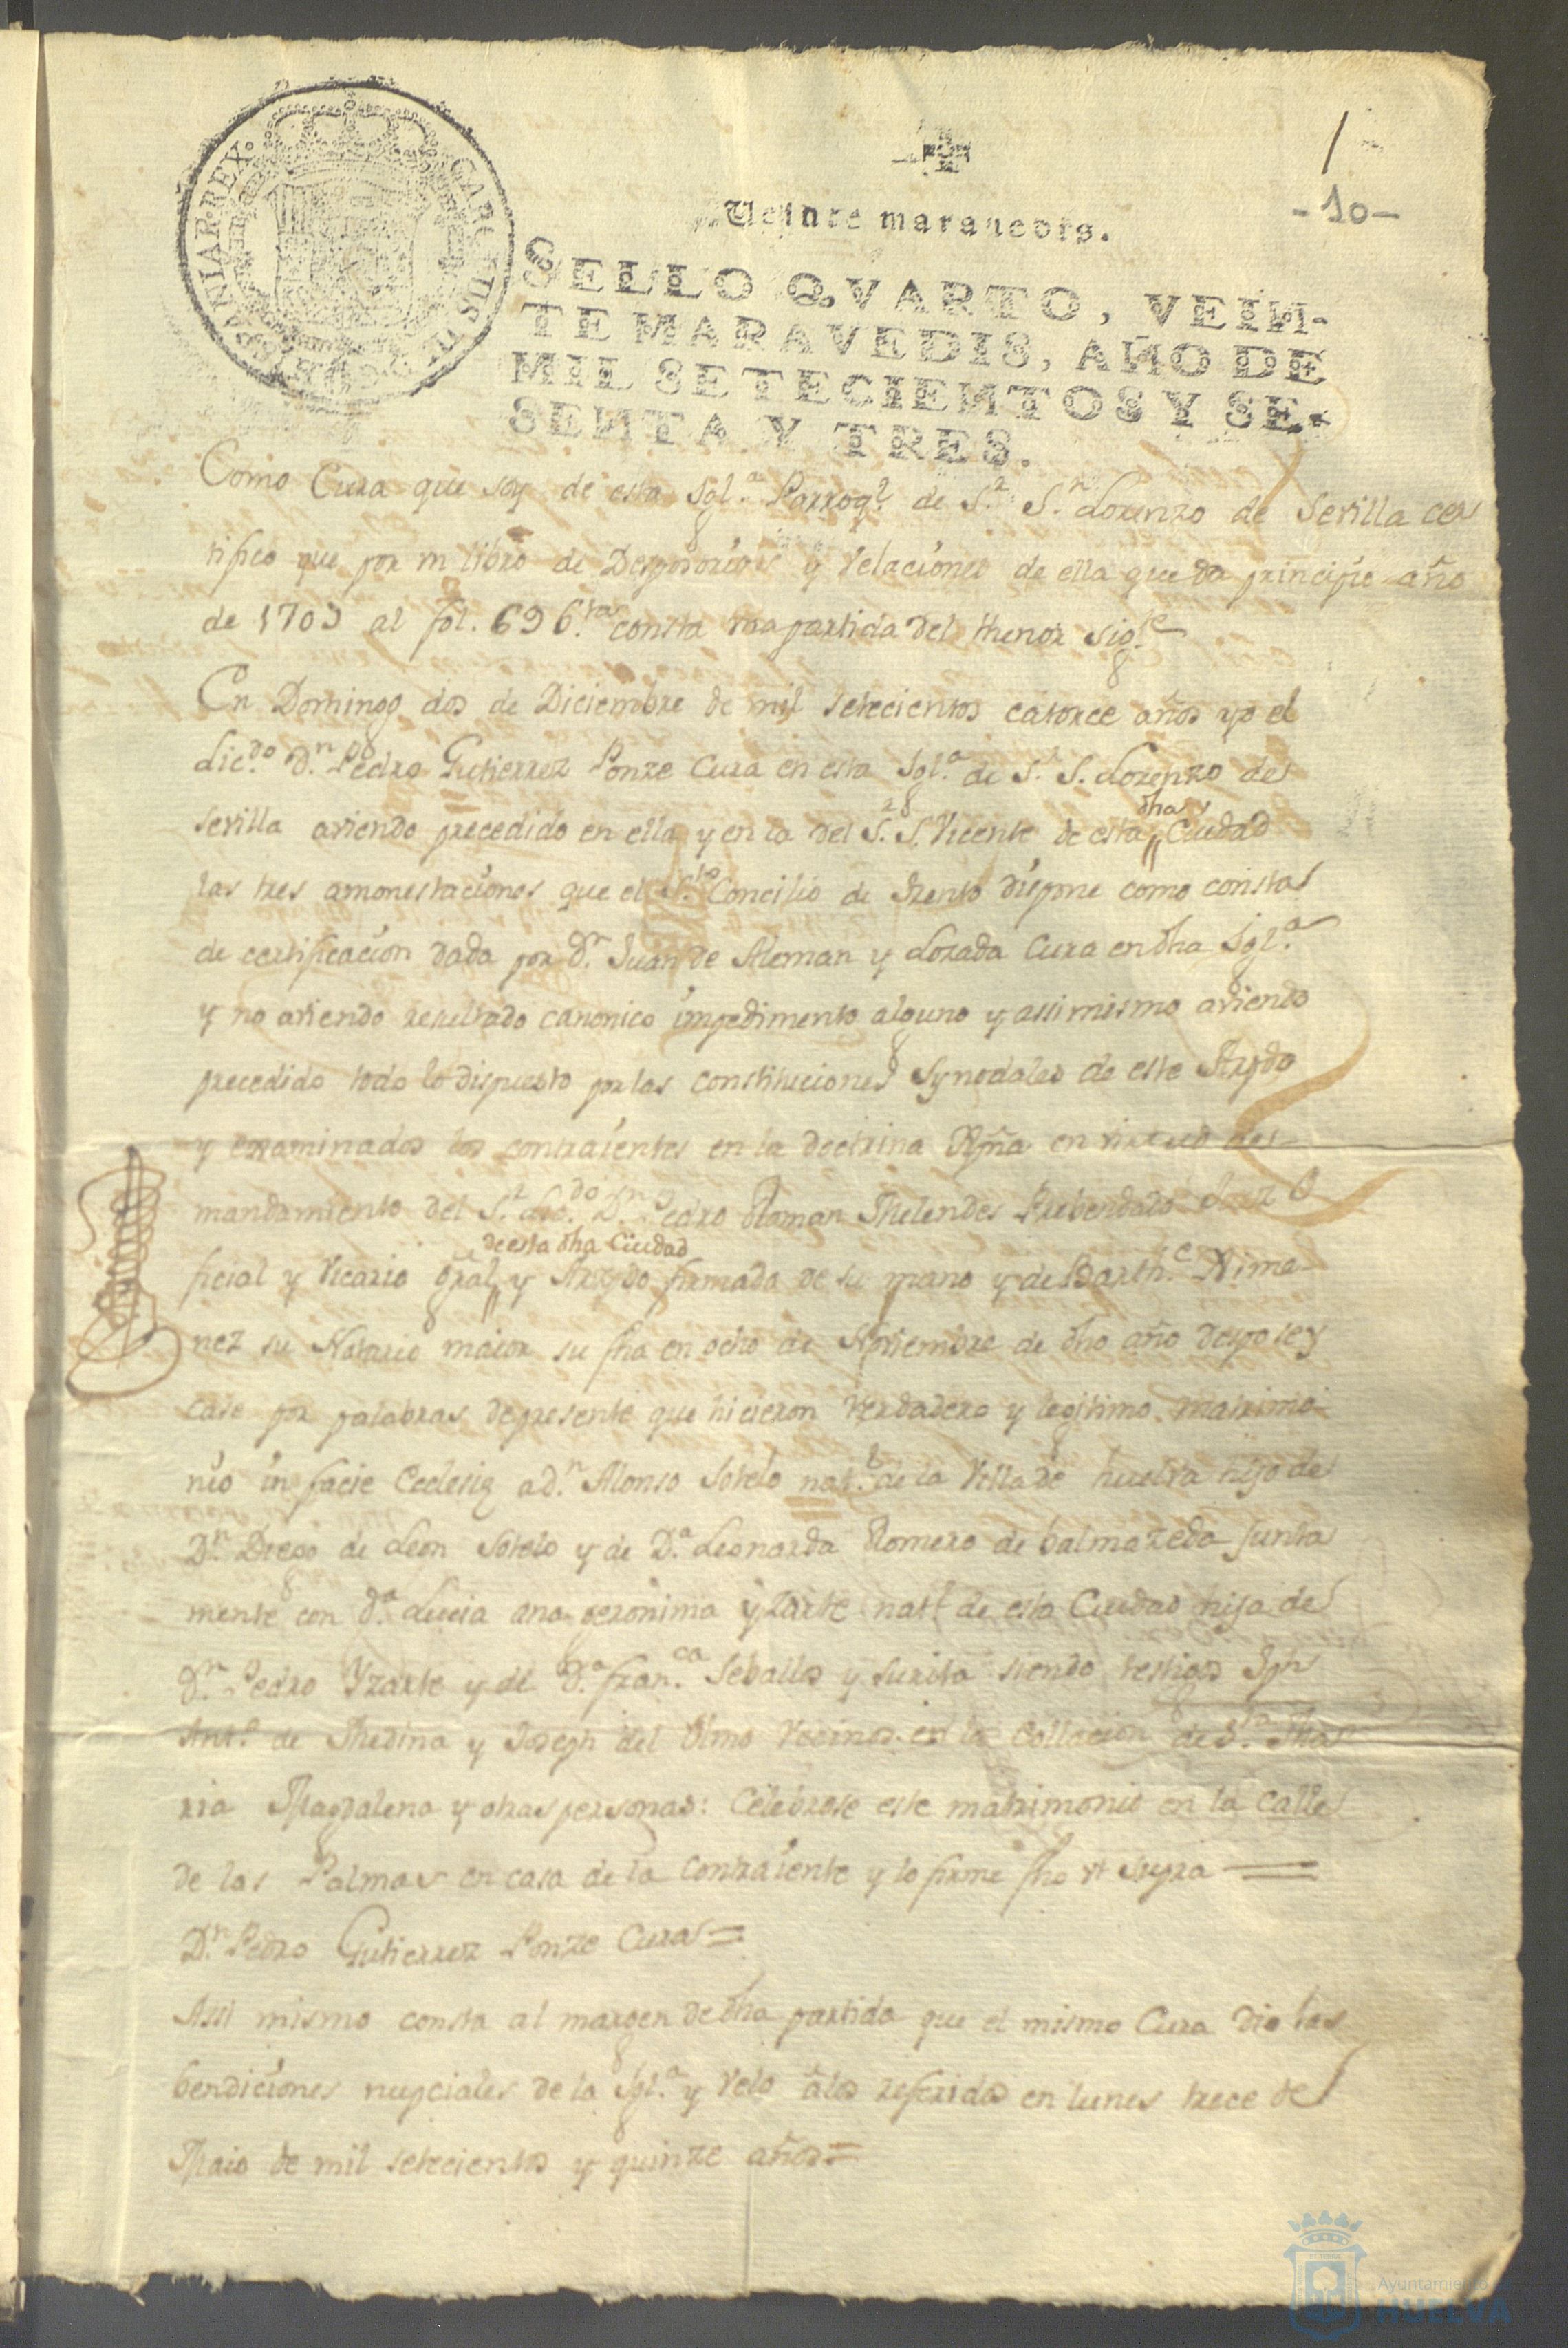 CAROLUS III D G HISPANIAR REX.
/
-10-
Veinte maravedis.
SELLO QVARTO, VEIN-
TE MARAVEDIS, AÑO DE
MIL SETECIENTOS Y SE-
SENTA Y TRES.
Como Cura que soy de esta Igl.ª Parroq.l de S.r S.n Lorenzo de Sevilla cer
tifico que por un libro de Desposorios y Velaciones de ella que da principio año
de 1703 al fol. 696 consta una partida del thenor sig.te
En Domingo dos de Diciembre de mil setecientos catorce años yo el
Lic.do D.n Pedro Gutierrez Ponze Cura en esta Igl.ª de S.r S. Lorenzo de
Sevilla aviendo precedido en ella y en la del S.r S. Vicente de esta dha Ciudad
las tres amonestaciones que el S.to Concilio de Trento dispone como consta
de certificacion dada por D.n Juan de Aleman y Lozada Cura en dha Igl.ª
y no aviendo resultado canonico impedimento alguno y assi mismo aviendo
precedido todo lo dispuesto por las constituciones synodales de este Arzpdo
y examinados los contraientes en la doctrina Xpña en virtud de
mandamiento del S.r Lic.do D.n Pedro Roman Melendes Prebendado Juez O
ficial y Vicario gral de esta dha Ciudad y Arzpdo firmada de su mano y de Barth.e Xime-
nez su Notario maior su fha en ocho de Noviembre de dho año despose y
case por palabras de presente que hicieron verdadero y legitimo matrimo-
nio in facie Eclesię a d.n Alonso Sotelo nat.l de la Villa de huelva hijo de
D.n Diego de Leon Sotelo y de D.ª Leonarda Romero de balmazeda junta
mente con d.ª Lucia ana geronima yzarte nat.l de esta Ciudad hija de
D.n Pedro Yzarte y de D.ª fran.ca Seballos y surita siendo testigos Jph
Ant.º de Medina y Joseph del Olmo Vecinos en la Collacion de S.ta Ma
ria Magdalena y otras personas: Celebrose este matrimonio en la Calle
de las Palmas en casa de la contraiente y lo firme fho ut supra =
D.n Pedro Gutierrez Ponze Cura =
Assi mismo consta al margen de dha partida que el mismo Cura dio las
bendiciones nupciales de la Igl.ª y velo â los referidos en lunes trece de
Maio de mil setecientos y quinze años =
Ayuntamiento
HUELVA